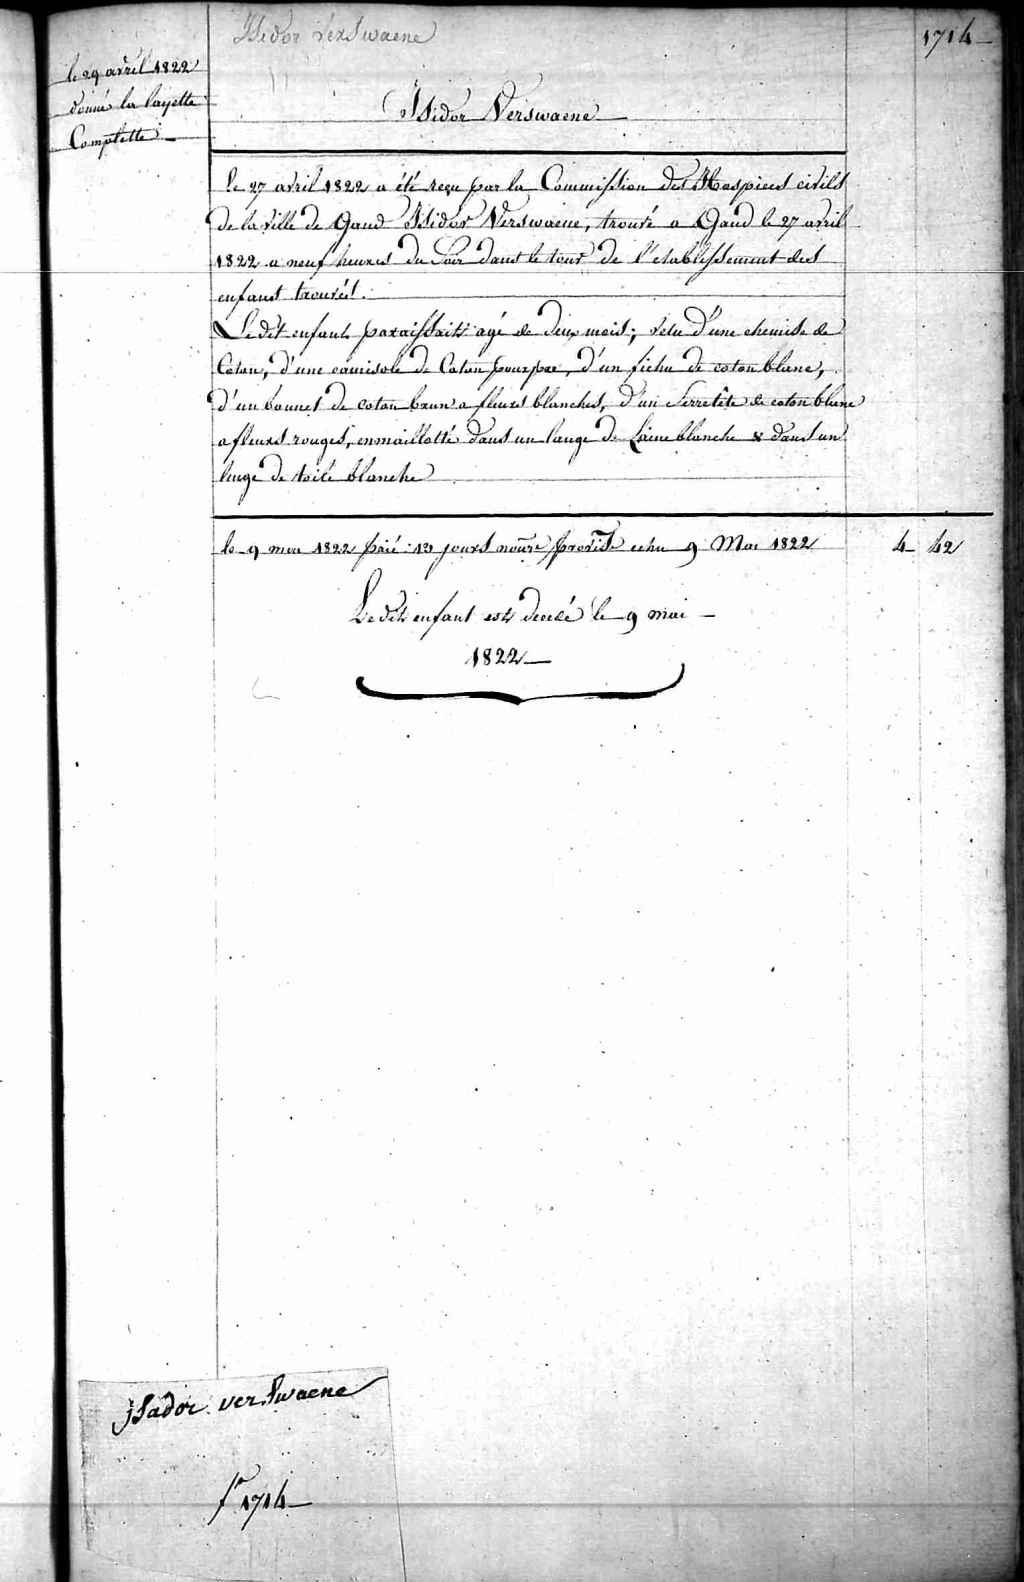 Isidor Verswaene
1714
le 29 avril 1822
donné la layette
Complette
Isidor Verswaene
le 27 avril 1822 a été reçu par la Commission des Hospices civils
de la ville de Gand Isidor Verswaene, trouvé a Gand le 27 avril
1822 a neuf heures du Soir dans le tour de l'etablissement des
enfans trouvés.
Le dit enfant paraissait agé de deux mois; vetu d'une chemise de
Coton, d'une camisole de Coton pourpre, d'un fichu de coton blanc,
d'un bonnet de coton brun a fleurs blanches, d'un Serretête de coton blanc
a fleurs rouges, enmaillotté dans un lange de Laine blanche & dans un
linge de toile blanche
le 9 mai 1822 paié 13 jours nourre provis echu 9 Mai 1822 4 42
Le dit enfant est decedé le 9 mai
1822
jsador verswaene
fo 1714